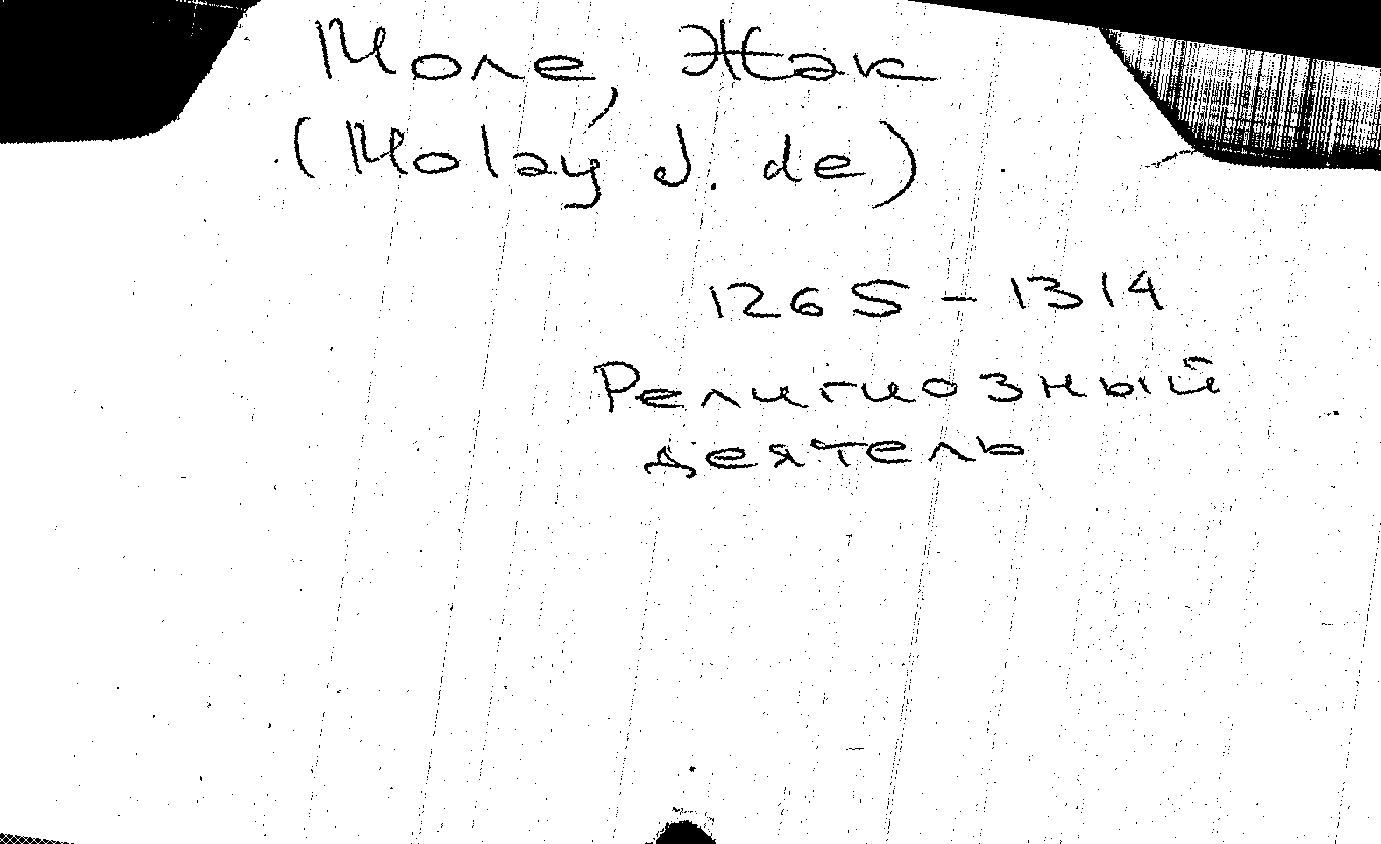 Моле, Жак
(Molay J. de)
1265 - 1314
Религиозный
деятель